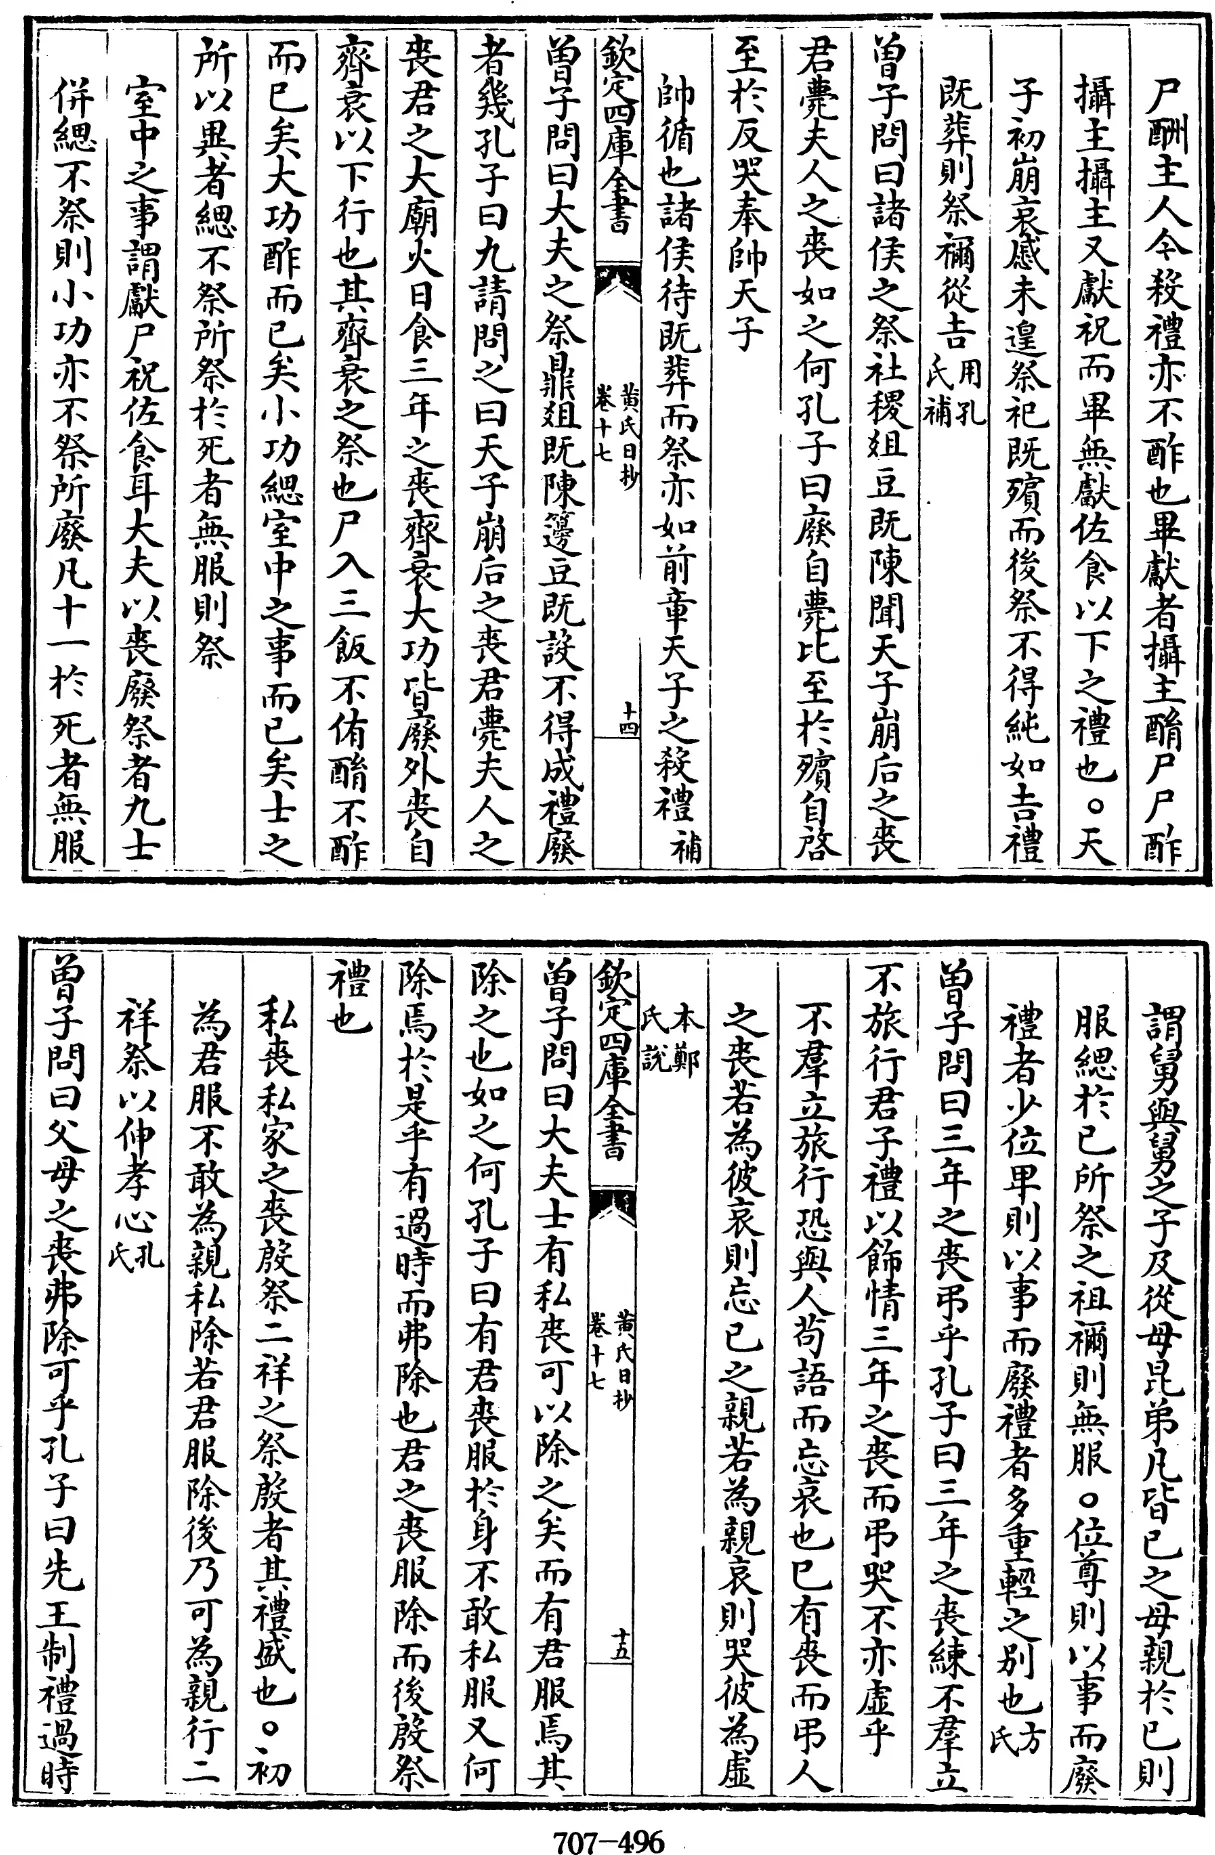 尸酬主人今殺禮亦不酢也畢獻者攝主酳尸尸酢
攝主攝主又獻祝而畢無獻佐食以下之禮也○天
子初崩哀慼未遑祭祀既殯而後祭不得純如吉禮
既葬則祭禰從吉用孔氏補
曾子問曰諸侯之祭社稷俎豆既陳聞天子崩后之喪
君薨夫人之喪如之何孔子曰廢自薨比至於殯自啓
至於反哭奉帥天子
帥循也諸侯待既葬而祭亦如前章天子之殺禮補
欽定四庫全書 黃氏日抄 卷十七 十四
曾子問曰大夫之祭鼎俎既陳籩豆既設不得成禮廢
者幾孔子曰九請問之曰天子崩后之喪君薨夫人之
喪君之大廟火日食三年之喪齊衰大功皆廢外喪自
齊衰以下行也其齊衰之祭也尸入三飯不侑酳不酢
而已矣大功酢而已矣小功緦室中之事而已矣士之
所以異者緦不祭所祭於死者無服則祭
室中之事謂獻尸祝佐食耳大夫以喪廢祭者九士
併緦不祭則小功亦不祭所廢凡十一於死者無服
謂舅與舅之子及從母昆弟凡皆已之母親於已則
服緦於已所祭之祖禰則無服○位尊則以事而廢
禮者少位卑則以事而廢禮者多重輕之別也方氏
曾子問曰三年之喪弔乎孔子曰三年之喪練不羣立
不旅行君子禮以飾情三年之喪而弔哭不亦虛乎
不羣立旅行恐與人苟語而忘哀也已有喪而弔人
之喪若為彼哀則忘已之親若為親哀則哭彼為虛
本鄭氏說
欽定四庫全書 黃氏日抄 卷十七 十五
曾子問曰大夫士有私喪可以除之矣而有君服焉其
除之也如之何孔子曰有君喪服於身不敢私服又何
除焉於是乎有過時而弗除也君之喪服除而後殷祭
禮也
私喪私家之喪殷祭二祥之祭殷者其禮盛也○初
為君服不敢為親私除若君服除後乃可為親行二
祥祭以伸孝心孔氏
曾子問曰父母之喪弗除可乎孔子曰先王制禮過時
707-496